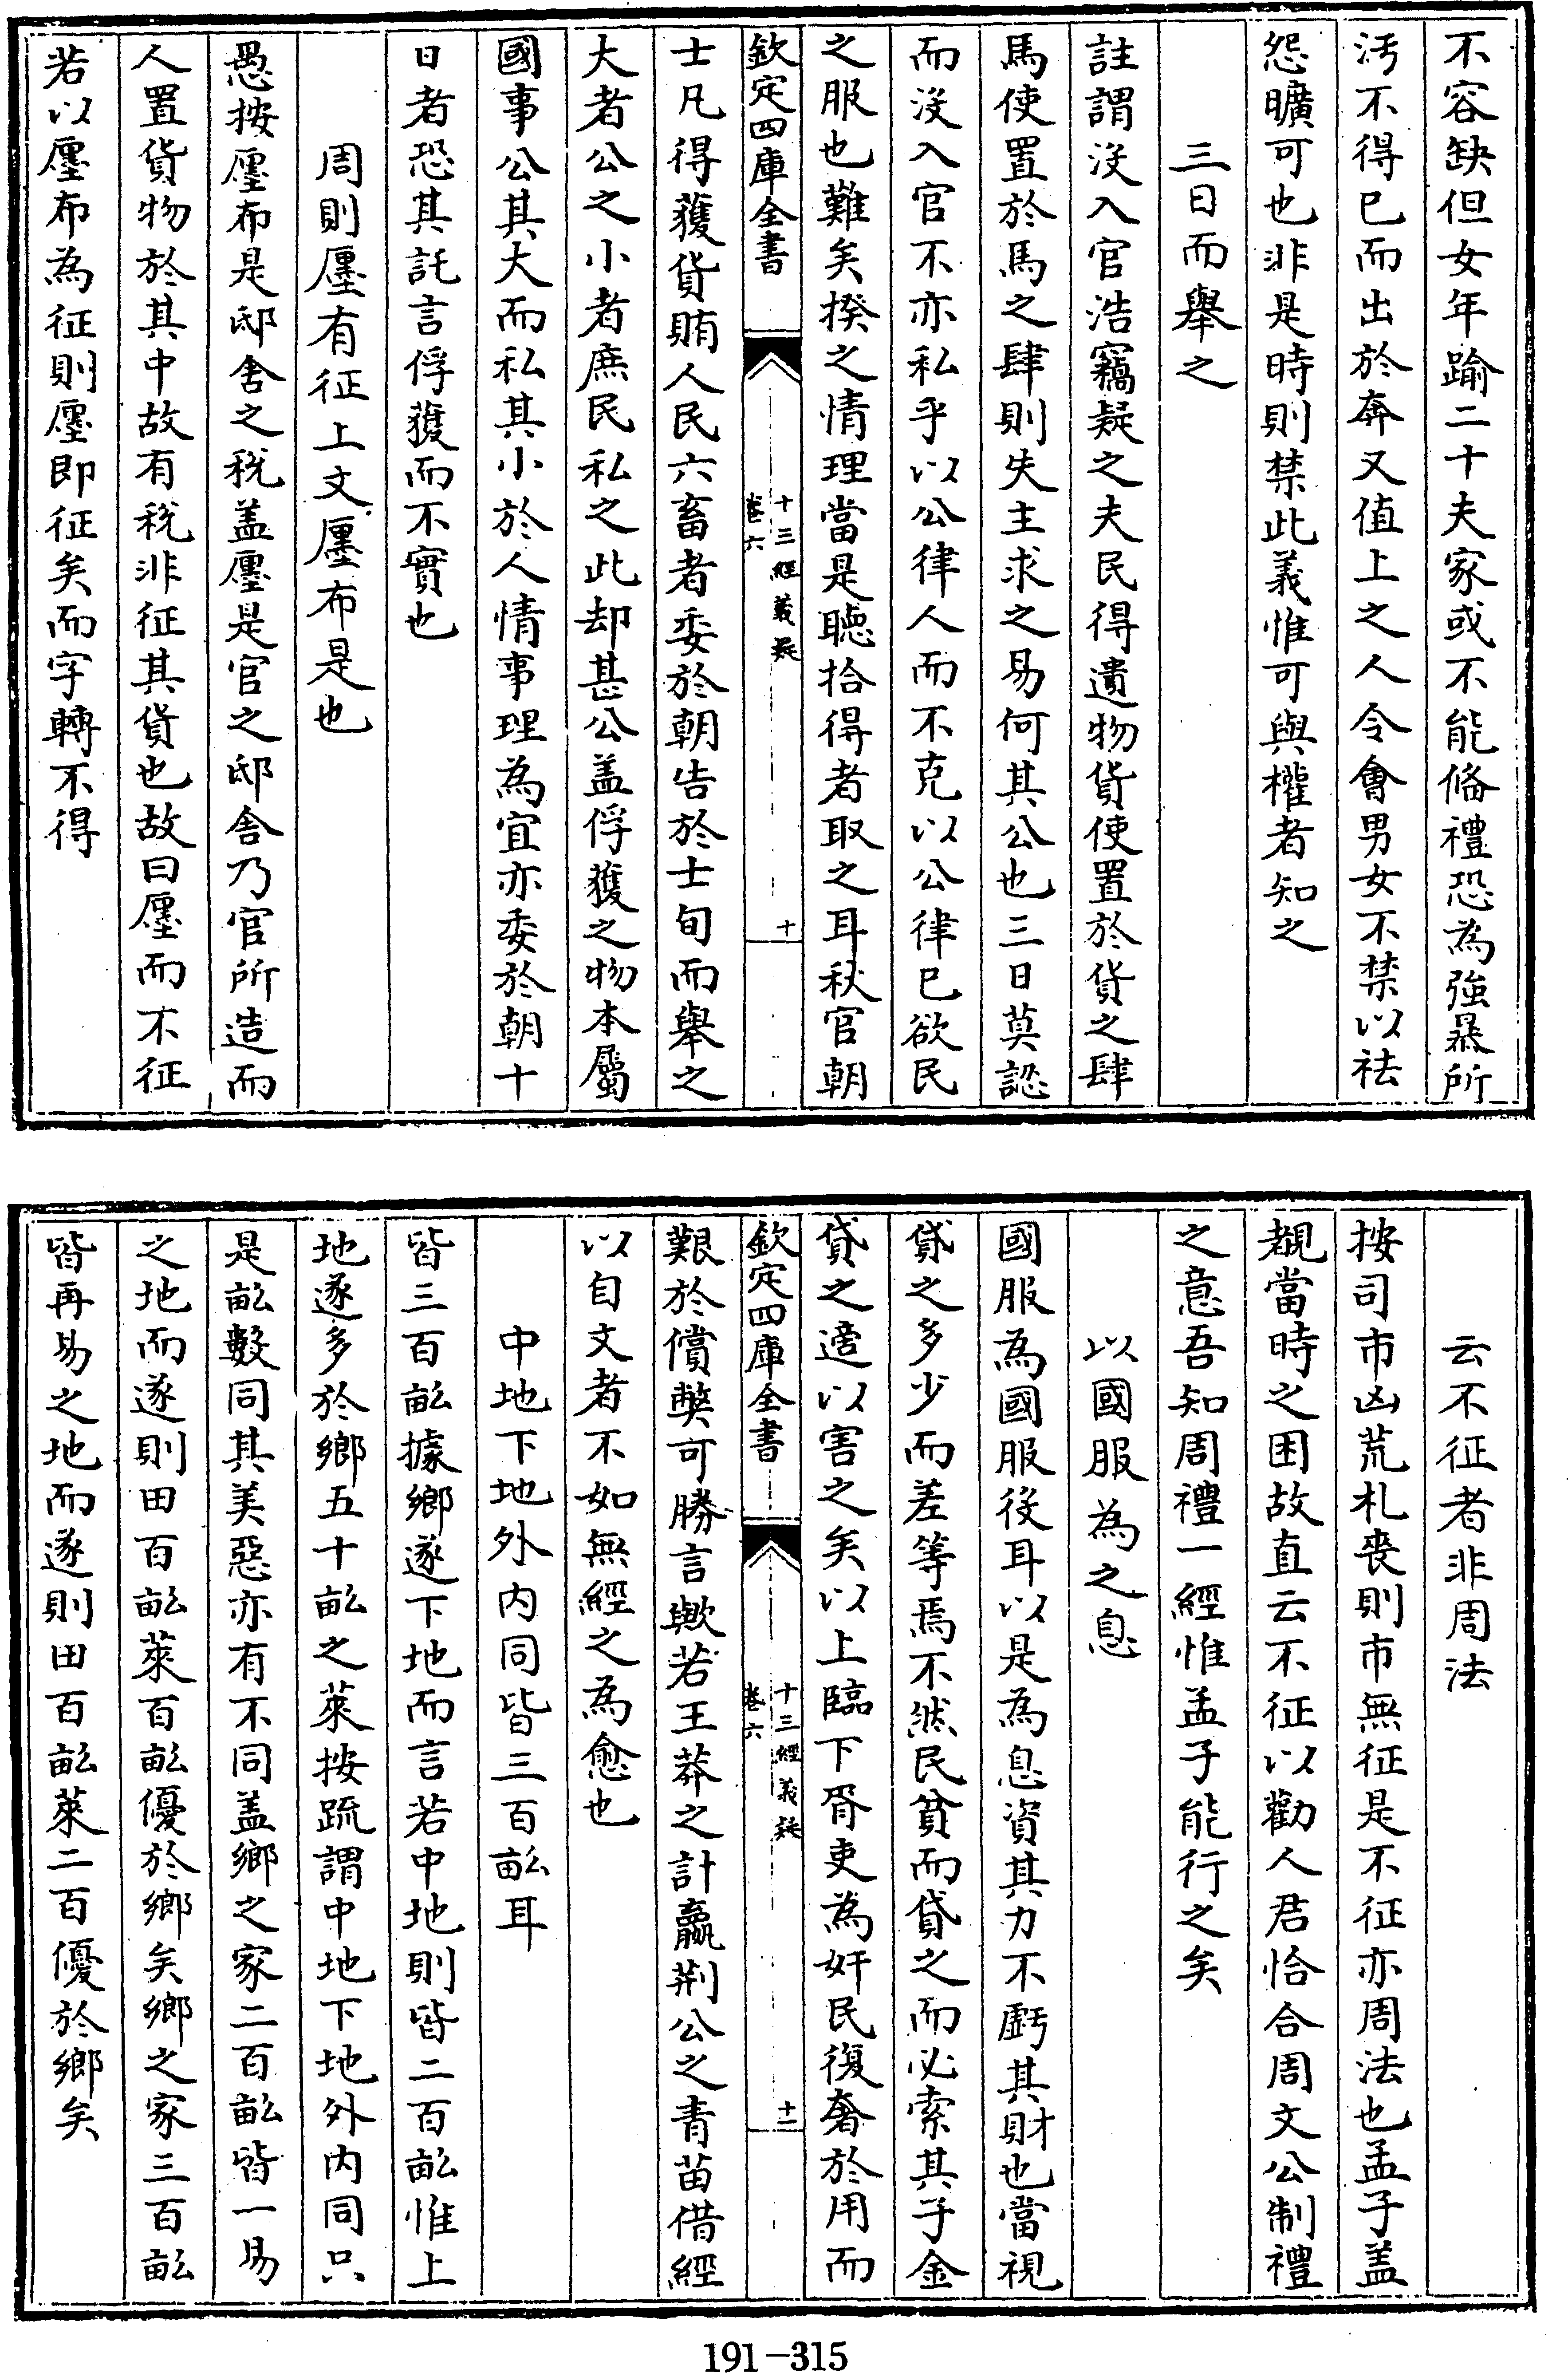 不容缺但女年踰二十夫家或不能偹禮恐為強暴所
汚不得已而出於奔又值上之人令會男女不禁以袪
怨曠可也非是時則禁此義惟可與權者知之
三日而舉之
註謂沒入官浩竊疑之夫民得遺物貨使置於貨之肆
馬使置於馬之肆則失主求之易何其公也三日莫認
而沒入官不亦私乎以公律人而不克以公律已欲民
之服也難矣揆之情理當是聽拾得者取之耳秋官朝
欽定四庫全書
十三經義疑
卷六
十
士凡得獲貨賄人民六畜者委於朝告於士旬而舉之
大者公之小者庶民私之此却甚公盖俘獲之物本屬
國事公其大而私其小於人情事理為宜亦委於朝十
日者恐其託言俘獲而不實也
周則廛有征上文廛布是也
愚按廛布是邸舍之稅盖廛是官之邸舍乃官所造而
人置貨物於其中故有稅非征其貨也故曰廛而不征
若以廛布為征則廛即征矣而字轉不得
云不征者非周法
按司市凶荒札喪則市無征是不征亦周法也孟子盖
覩當時之困故直云不征以勸人君恰合周文公制禮
之意吾知周禮一經惟孟子能行之矣
以國服為之息
國服為國服役耳以是為息資其力不虧其財也當視
貸之多少而差等焉不然民貧而貸之而必索其子金
貸之適以害之矣以上臨下胥吏為奸民復奢於用而
欽定四庫全書
十三經義疑
卷六
十一
艱於償獘可勝言歟若王莽之計贏荆公之青苗借經
以自文者不如無經之為愈也
中地下地外内同皆三百畝耳
皆三百畝據鄉遂下地而言若中地則皆二百畝惟上
地遂多於鄉五十畝之萊按疏謂中地下地外内同只
是畝數同其美惡亦有不同盖鄉之家二百畝皆一易
之地而遂則田百畝萊百畝優於鄉矣鄉之家三百畝
皆再易之地而遂則田百畝萊二百優於鄉矣
191-315